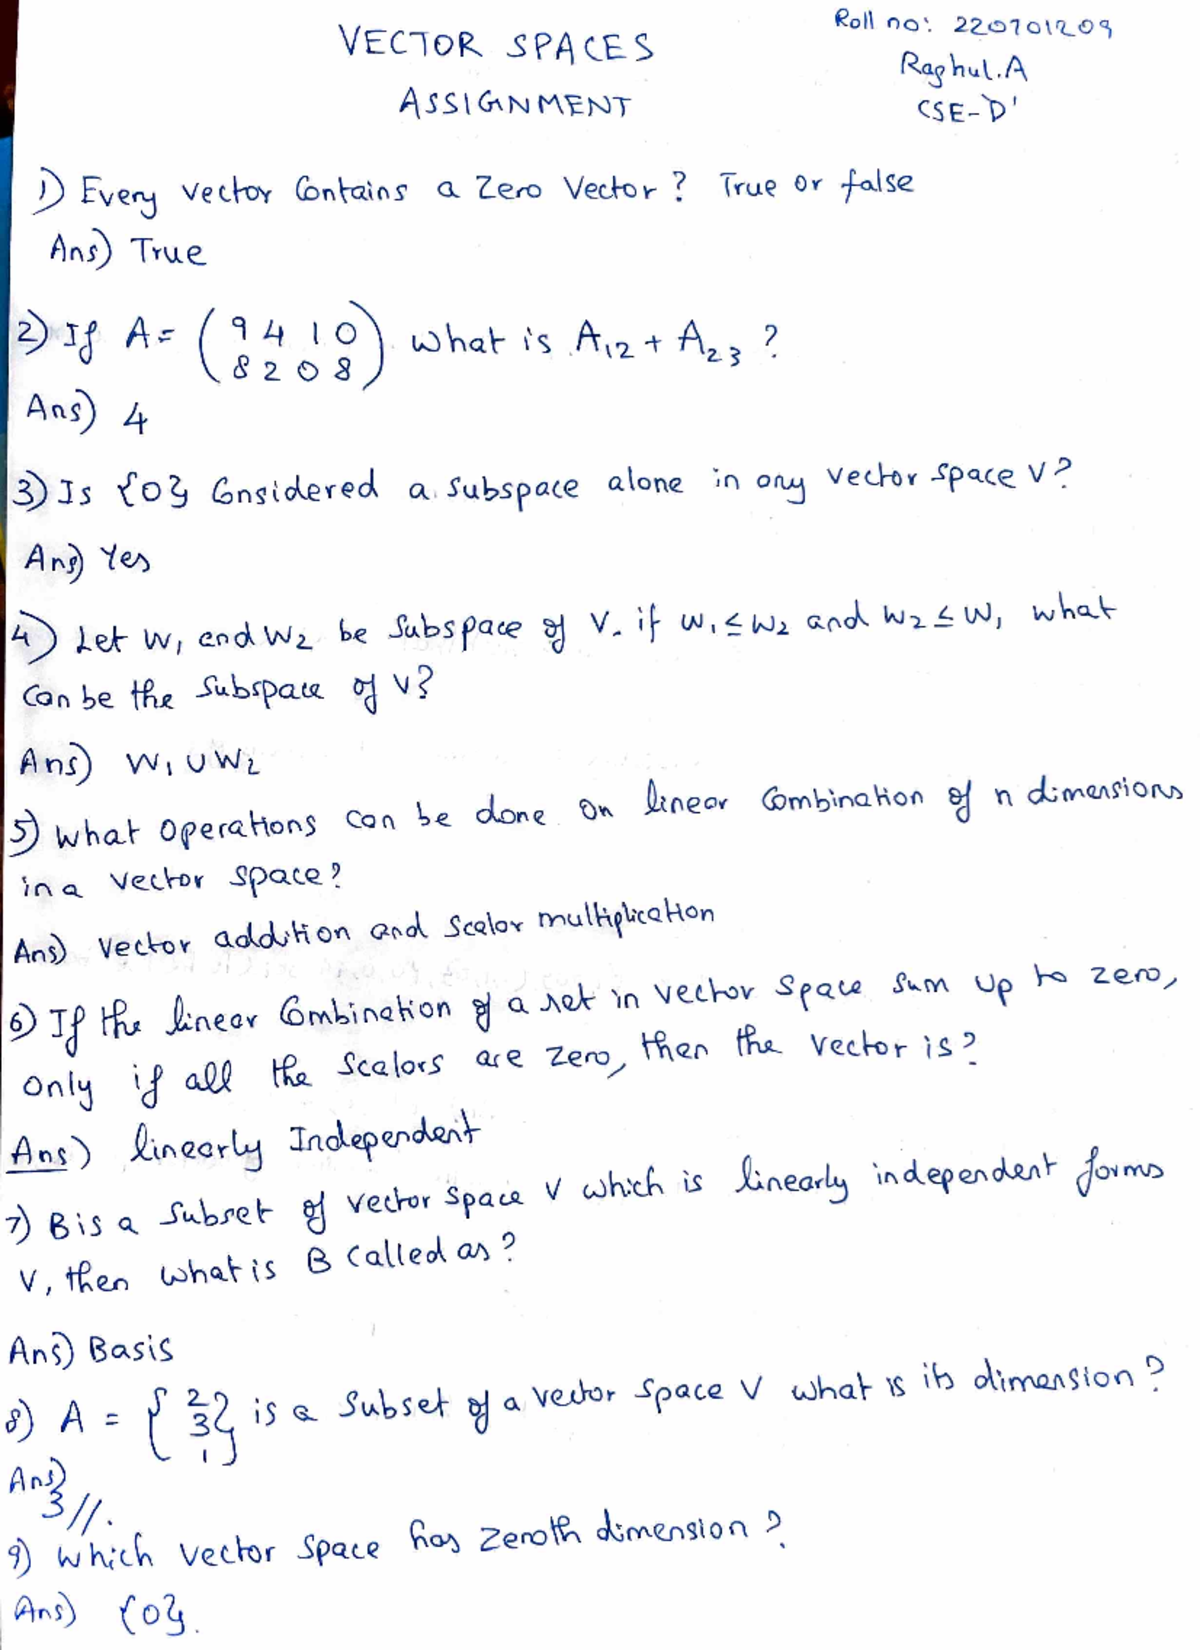 VECTOR SPACES
ASSIGNMENT
Roll no: 220701209
Raghul.A
CSE-'D'
1) Every vector Contains a Zero Vector? True or false
Ans) True
2) If A = (9 4 1 0
8 2 0 8) what is A12 + A23 ?
Ans) 4
3) Is {0} Considered a subspace alone in any vector space V?
Ans) Yes
4) Let W1 and W2 be Subspace of V. if W1 ≤ W2 and W2 ≤ W1 what
Can be the Subspace of V?
Ans) W1 ∪ W2
5) What Operations can be done on linear Combination of n dimensions
in a vector space?
Ans) Vector addition and Scalar multiplication
6) If the linear Combination of a set in vector space sum up to zero,
only if all the Scalars are zero, then the vector is?
Ans) linearly Independent
7) B is a Subset of vector space V which is linearly independent forms
V, then what is B Called as?
Ans) Basis
8) A = {2
3
1} is a Subset of a vector space V what is its dimension?
Ans)
3//.
9) Which vector space has zeroth dimension?
Ans) {0}.